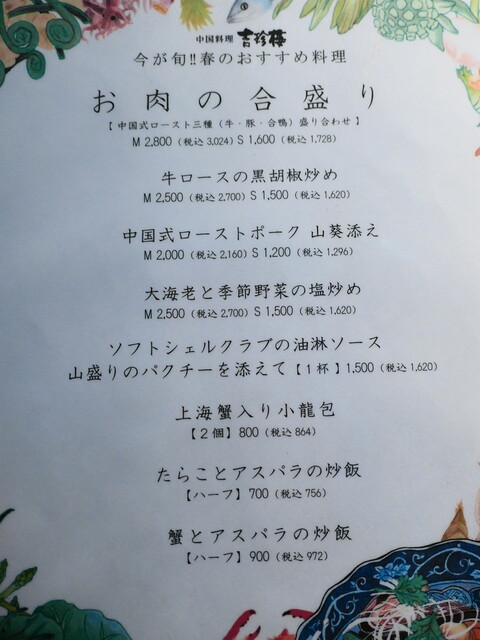 中国料理 吉珍樓
今が旬!!春のおすすめ料理
お肉の合盛り
【 中国式ロースト三種（牛・豚・合鴨）盛り合わせ 】
M 2,800（税込 3,024）S 1,600（税込 1,728）
牛ロースの黒胡椒炒め
M 2,500（税込 2,700）S 1,500（税込 1,620）
中国式ローストポーク 山葵添え
M 2,000（税込 2,160）S 1,200（税込 1,296）
大海老と季節野菜の塩炒め
M 2,500（税込 2,700）S 1,500（税込 1,620）
ソフトシェルクラブの油淋ソース
山盛りのパクチーを添えて【 1杯 】1,500（税込 1,620）
上海蟹入り小龍包
【 2個 】800（税込 864）
たらことアスパラの炒飯
【ハーフ 】700（税込 756）
蟹とアスパラの炒飯
【ハーフ 】900（税込 972）